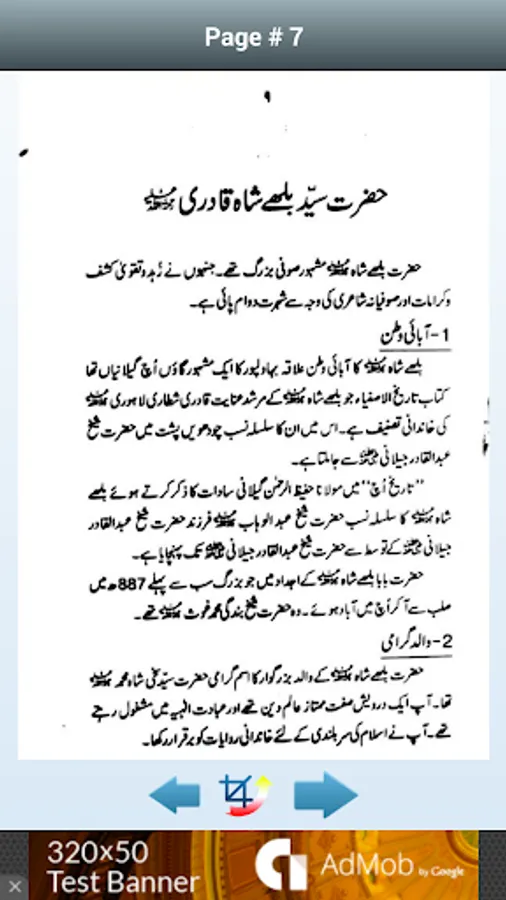 Page # 7
۹
حضرت سیّد بلھے شاہ قادری رحمۃ اللہ علیہ
حضرت بلھے شاہ رحمۃ اللہ علیہ مشہور صوفی بزرگ تھے۔ جنہوں نے زُہد و تقویٰ کشف
و کرامات اور صوفیانہ شاعری کی وجہ سے شہرت دوام پائی ہے۔
1- آبائی وطن
بلھے شاہ رحمۃ اللہ علیہ کا آبائی وطن علاقہ بہاولپور کا ایک مشہور گاؤں اُچ گیلانیاں تھا
کتاب تاریخ الاصفیاء جو بلھے شاہ رحمۃ اللہ علیہ کے مرشد عنایت قادری شطاری لاہوری رحمۃ اللہ علیہ
کی خاندانی تصنیف ہے۔ اس میں ان کا سلسلہ نسب چودھویں پشت میں حضرت شیخ
عبدالقادر جیلانی رحمۃ اللہ علیہ سے جا ملتا ہے۔
"تاریخ اُچ" میں مولانا حفیظ الرحمٰن گیلانی سادات کا ذکر کرتے ہوئے بلھے
شاہ رحمۃ اللہ علیہ کا سلسلہ نسب حضرت شیخ عبدالوہاب رحمۃ اللہ علیہ فرزند حضرت شیخ عبدالقادر
جیلانی رحمۃ اللہ علیہ کے توسط سے حضرت شیخ عبدالقادر جیلانی رحمۃ اللہ علیہ تک پہنچایا ہے۔
حضرت بابا بلھے شاہ رحمۃ اللہ علیہ کے اجداد میں جو بزرگ سب سے پہلے 887ھ میں
حلب سے آ کر اُچ میں آباد ہوئے۔ وہ حضرت شیخ بندگی محمد غوث رحمۃ اللہ علیہ تھے۔
2- والد گرامی
حضرت بلھے شاہ رحمۃ اللہ علیہ کے والد بزرگوار کا اسم گرامی حضرت سیّد سخی شاہ محمد رحمۃ اللہ علیہ
تھا۔ آپ ایک درویش صفت ممتاز عالم دین تھے اور عبادت الٰہیہ میں مشغول رہتے
تھے۔ آپ نے اسلام کی سر بلندی کے لئے خاندانی روایات کو برقرار رکھا۔
320×50
Test Banner
AdMob by Google